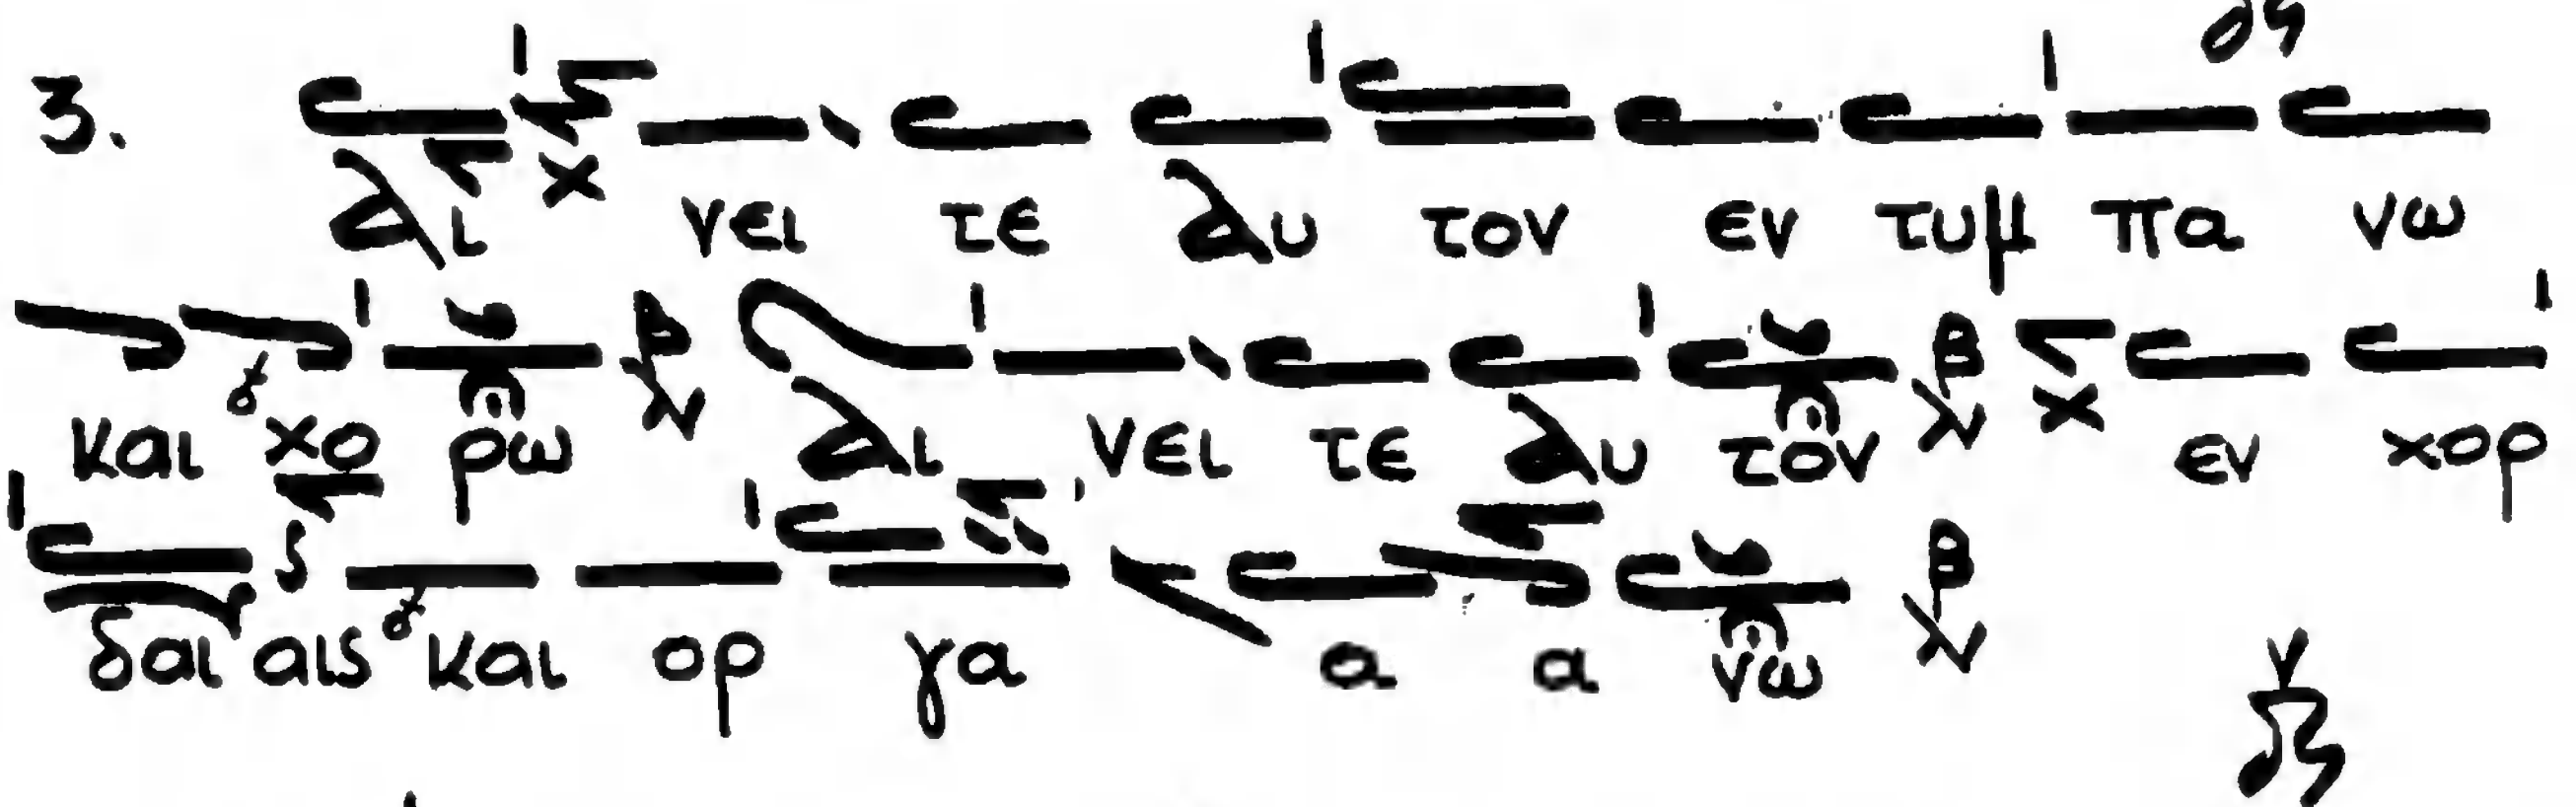 3. αι νει τε αυ τον εν τυμ πα νω
και χο ρω αι νει τε αυ τον εν χορ
δαι αις και ορ γα α α νω